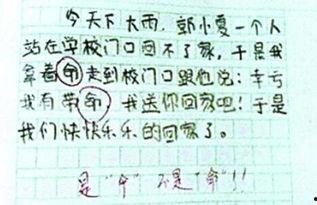 今天下大雨,郭小夏一个人
站在学校门口回不了家,于是我
拿着命走到校门口跟他说:幸亏
我有带命,我送你回家吧!于是
我们快快乐乐的回家了。
是"伞"不是"命"!!